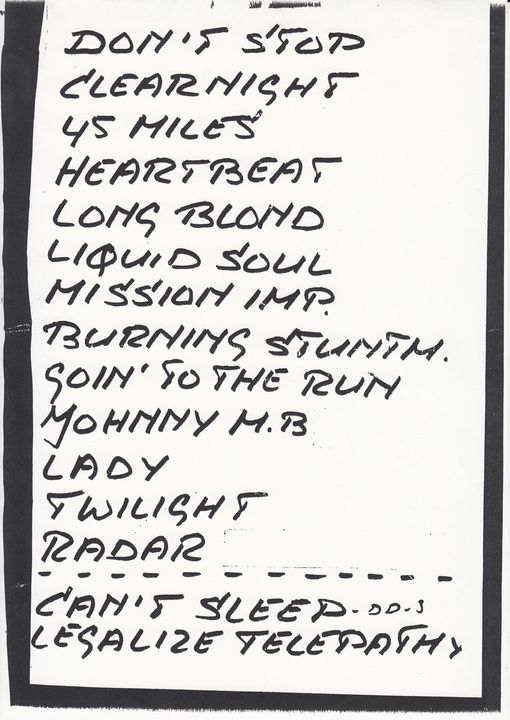 DON'T STOP
CLEARNIGHT
45 MILES
HEARTBEAT
LONG BLOND
LIQUID SOUL
MISSION IMP.
BURNING STUNTM.
GOIN' TO THE RUN
JOHNNY M.B
LADY
TWILIGHT
RADAR
CAN'T SLEEP. DD.3
LEGALIZE TELEPATHY